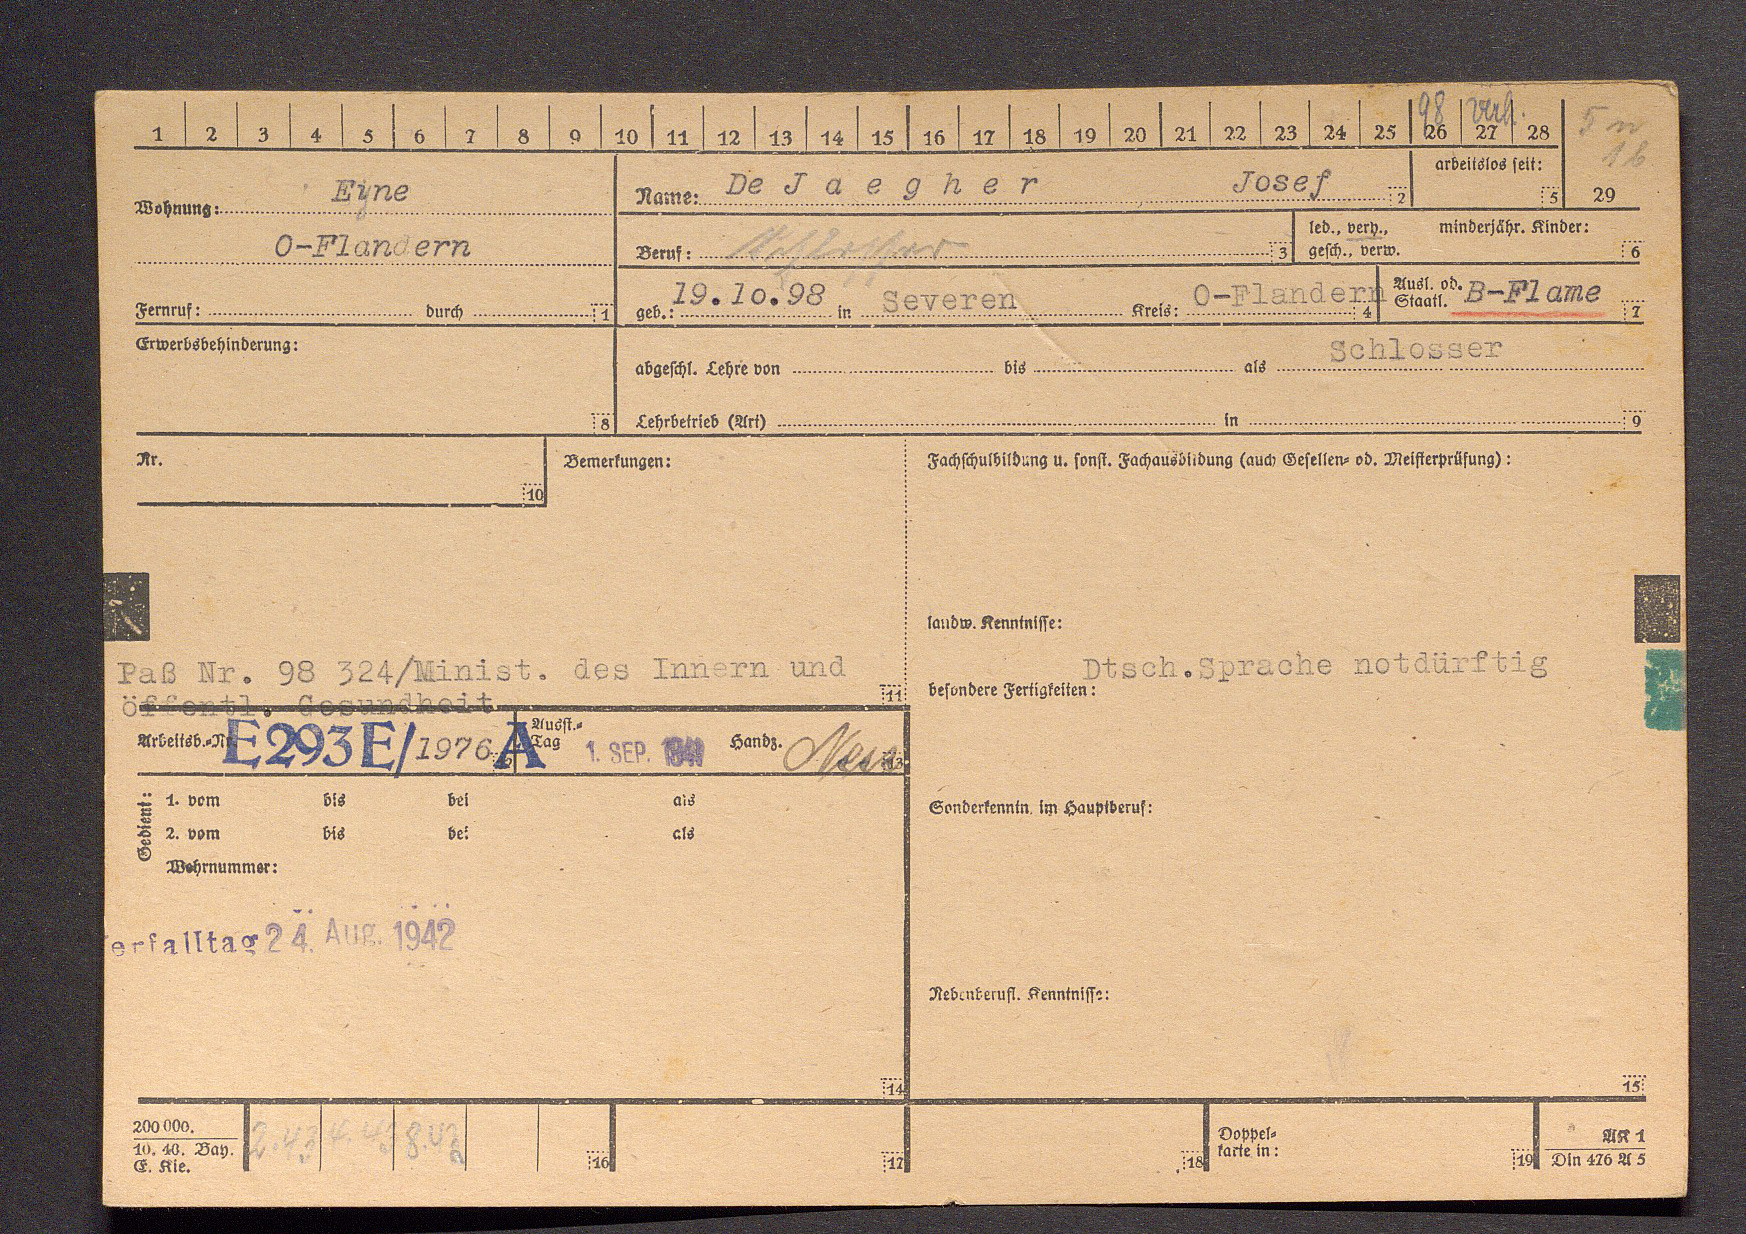 98 verh.
1 2 3 4 5 6 7 8 9 10 11 12 13 14 15 16 17 18 19 20 21 22 23 24 25 26 27 28
5 n
1b
Wohnung: Eyne
O-Flandern
Fernruf: durch 1
Name: De Jaegher Josef 2
arbeitslos seit: 5
29
Beruf: Schlosser 3
led., verh., minderjähr. Kinder:
gesch., verw. 6
geb.: 19.10.98 in Severen Kreis: O-Flandern 4
Ausl. od. Staatl. B-Flame 7
Erwerbsbehinderung:
8
Schlosser
abgeschl. Lehre von bis als
Lehrbetrieb (Art) in 9
Nr.
10
Bemerkungen:
Fachschulbildung u. sonst. Fachausbildung (auch Gesellen- od. Meisterprüfung):
landw. Kenntnisse:
Paß Nr. 98 324/Minist. des Innern und
öffentl. Gesundheit
11
Dtsch.Sprache notdürftig
besondere Fertigkeiten:
Arbeitsb.-Nr. E293E/1976 A
Ausst.-Tag 1. SEP. 1941 Handz. 13
Gedient:
1. vom bis bei als
2. vom bis bei als
Wehrnummer:
Sonderkenntn. im Hauptberuf:
erfalltag 24. Aug. 1942
Nebenberufl. Kenntnisse:
14
15
200 000.
10. 40. Bay.
E. Kie.
2.43 4.43 8.43
16
17
18
Doppel-
karte in: 19
AK 1
Din 476 A 5